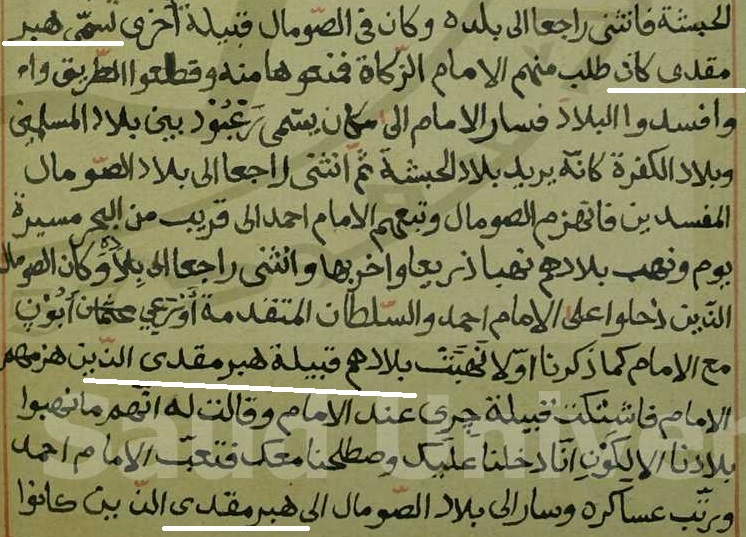 الحبشة فانثنى راجعا الى بلده وكان فى الصّومال قبيلة أخرى تسمّى هبر
مقدى كان طلب منهم الامام الزّكاة فمنعوها منه وقطعوا الطّريق واه
وافسدوا البلاد فسار الامام الى مكان يسمّى زَعْبُوْد بين بلاد المسلمين
وبلاد الكفرة كانّه يريد بلاد الحبشة ثمّ انثنى راجعا الى بلاد الصّومال
المفسدين فانهزم الصومال وتبعهم الامام احمد الى قريب من البحر مسيرة
يوم ونهب بلادهم نهبا ذريعا واخربها وانثنى راجعا الى بلاده وكان الصومال
الّذين دخلوا على الامام احمد والسّلطان المتقدمة أورعي عثمان أبون
مع الامام كما ذكرنا اوّلا نُهِبَتْ بلادهم قبيلة هبر مقدى الّذين هزمهم
الامام فاشتكت قبيلة جرى عند الامام وقالت له انّهم ما نهبوا
بلادنا الا لكون انّا دخلنا عليك وصطلحنا معك فتعب الامام احمد
ورتّب عساكره وسار الى بلاد الصّومال الى هبر مقدى الّذين كانوا
Saud Univer